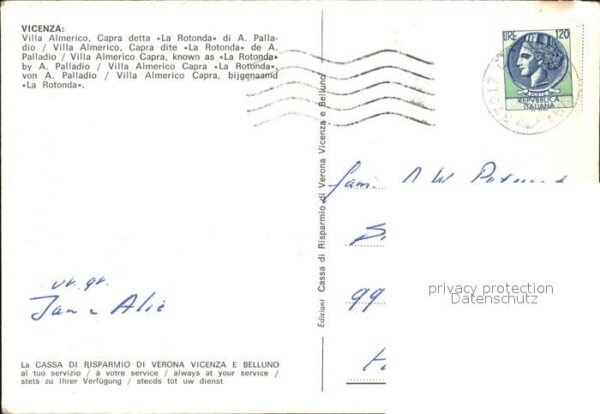 VICENZA:
Villa Almerico, Capra detta «La Rotonda» di A. Palla-
dio / Villa Almerico, Capra dite «La Rotonda» de A.
Palladio / Villa Almerico Capra, known as «La Rotonda»
by A. Palladio / Villa Almerico Capra «La Rotonda»,
von A. Palladio / Villa Almerico Capra, bijgenaamd
«La Rotonda».
vr. gr.
Jan & Alie
La CASSA DI RISPARMIO DI VERONA VICENZA E BELLUNO
al tuo servizio / à votre service / always at your service /
stets zu Ihrer Verfügung / steeds tot uw dienst
Edizioni Cassa di Risparmio di Verona Vicenza e Belluno
LIRE 120
REPVBBLICA
ITALIANA
Fam.
99
privacy protection
Datenschutz